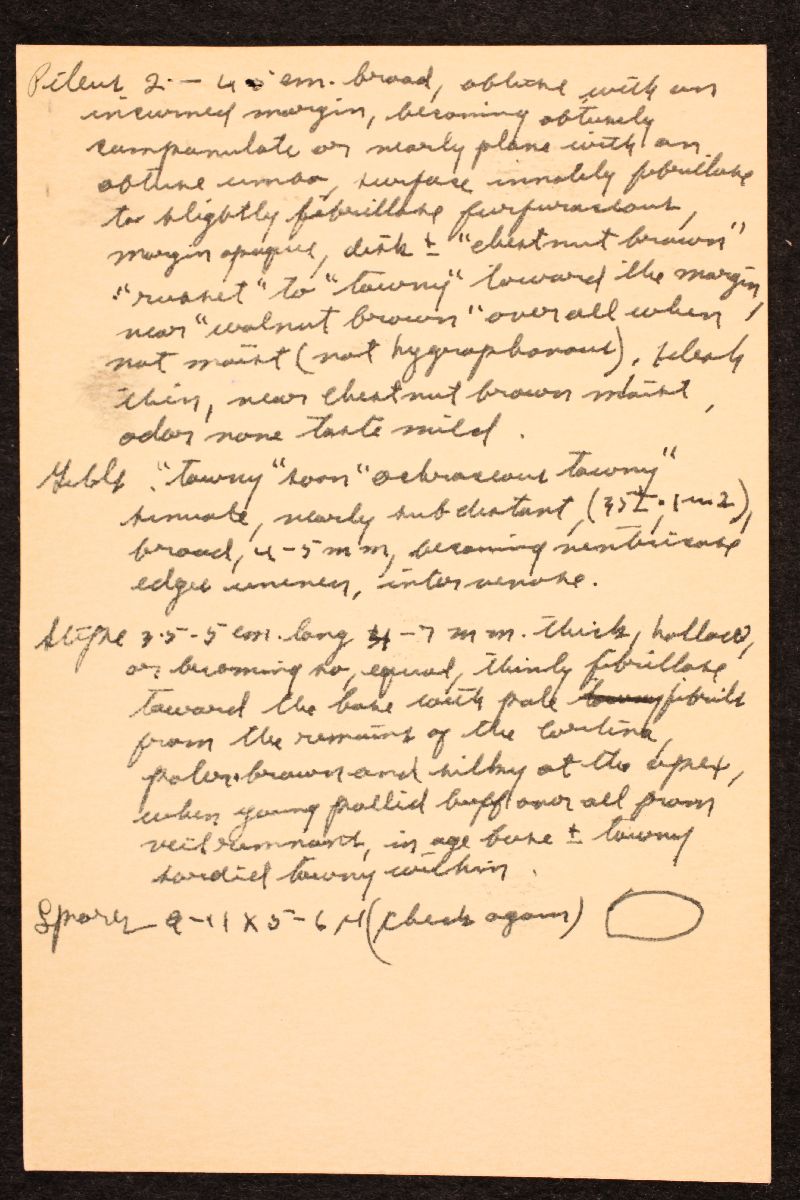 Pileus 2 – 4.5 cm. broad, obtuse with an
incurved margin, becoming obtusely
campanulate or nearly plane with an
obtuse umbo, surface innately fibrillose
to slightly fibrillose furfuraceous,
margin opaque, disk ± "chestnut brown"
"russet" to "tawny" toward the margin,
near "walnut brown" over all when
not moist (not hygrophanous). flesh
thin, near chestnut brown moist,
odor none taste mild.
Gills "tawny" soon "ochraceous tawny"
sinuate, nearly subdistant, (35±. 1 – 2),
broad, 4-5 mm, becoming ventricose
edges uneven, intervenose.
Stipe 3.5-5 cm. long 4 – 7 mm. thick, hollow,
or becoming so, equal, thinly fibrillose
toward the base with pale tawny fibrils
from the remains of the cortina,
paler brown and silky at the apex,
when young pallid buff over all from
veil remnant, in age base ± tawny
sordid tawny within.
Spores 9-11 X 5-6 μ (check again)